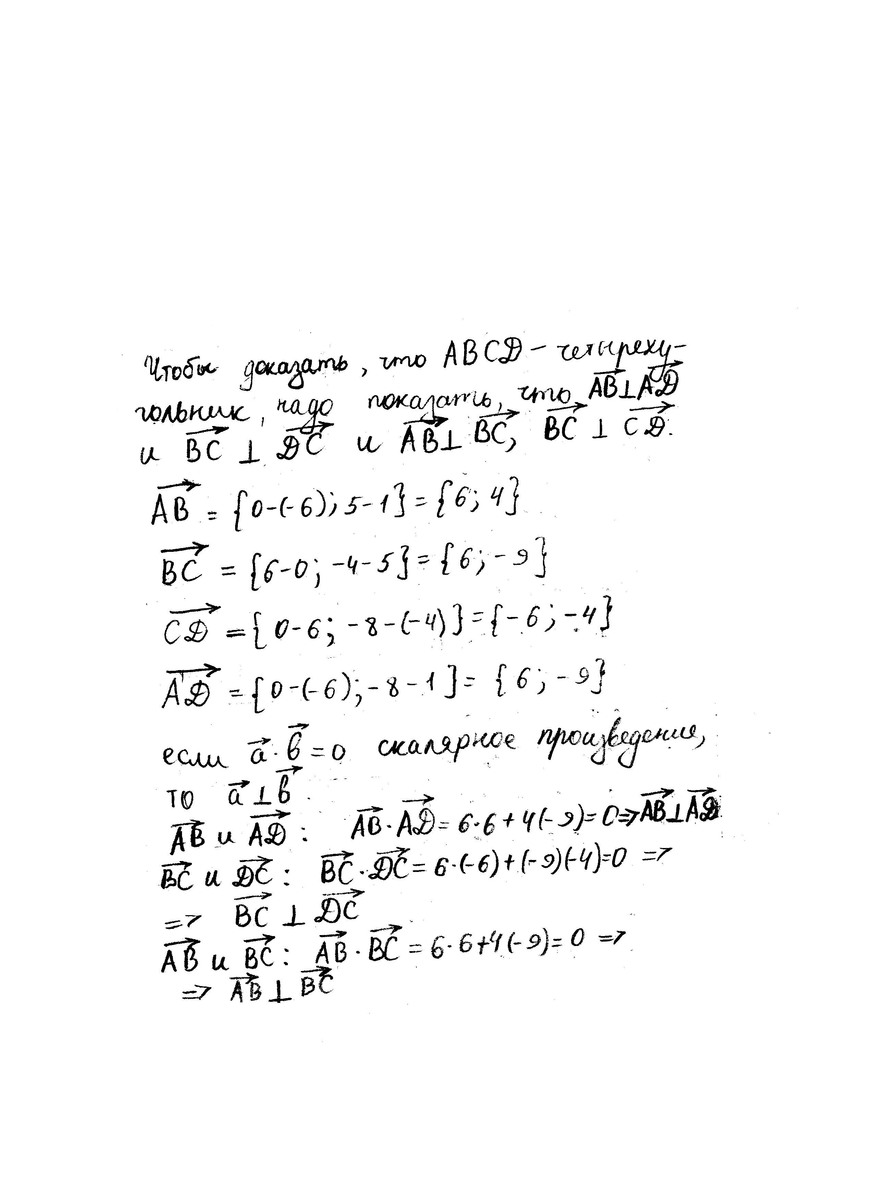 Чтобы доказать, что ABCD – четыреху-
гольник, надо показать, что AB⃗ ⊥ AD⃗
и BC⃗ ⊥ DC⃗ и AB⃗ ⊥ BC⃗, BC⃗ ⊥ CD⃗.
AB⃗ = {0-(-6); 5-1} = {6; 4}
BC⃗ = {6-0; -4-5} = {6; -9}
CD⃗ = {0-6; -8-(-4)} = {-6; -4}
AD⃗ = {0-(-6); -8-1} = {6; -9}
если a⃗ · b⃗ = 0 скалярное произведение,
то a⃗ ⊥ b⃗.
AB⃗ и AD⃗: AB⃗ · AD⃗ = 6·6+4(-9)=0 => AB⃗ ⊥ AD⃗
BC⃗ и DC⃗: BC⃗ · DC⃗ = 6·(-6)+(-9)(-4)=0 =>
=> BC⃗ ⊥ DC⃗
AB⃗ и BC⃗: AB⃗ · BC⃗ = 6·6+4(-9)=0 =>
=> AB⃗ ⊥ BC⃗